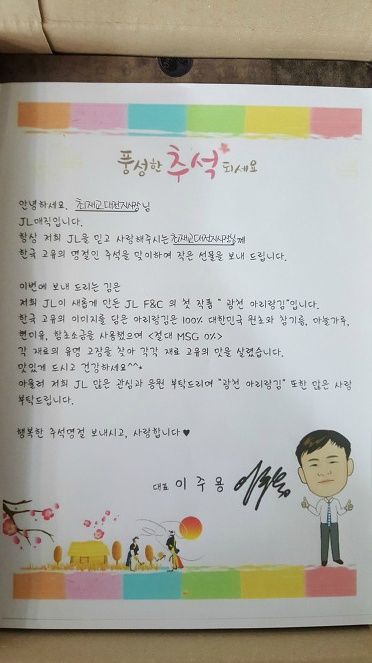 풍성한 추석 되세요
안녕하세요. 최재교대전지사장님
JL매직입니다.
항상 저희 JL을 믿고 사랑해주시는 최재교대전지사장님께
한국 고유의 명절인 추석을 맞이하여 작은 선물을 보내 드립니다.
이번에 보내 드리는 김은
저희 JL이 새롭게 만든 JL F&C 의 첫 작품 "광천 아리랑김"입니다.
한국 고유의 이미지를 담은 아리랑김은 100% 대한민국 원초와 참기름, 마늘가루,
현미유, 함초소금을 사용했으며 <절대 MSG 0%>
각 재료의 유명 고장을 찾아 각각 재료 고유의 맛을 살렸습니다.
맛있게 드시고 건강하세요^^*
아울러 저희 JL 많은 관심과 응원 부탁드리며 "광천 아리랑김" 또한 많은 사랑
부탁드립니다.
행복한 추석명절 보내시고, 사랑합니다♥
대표 이주용